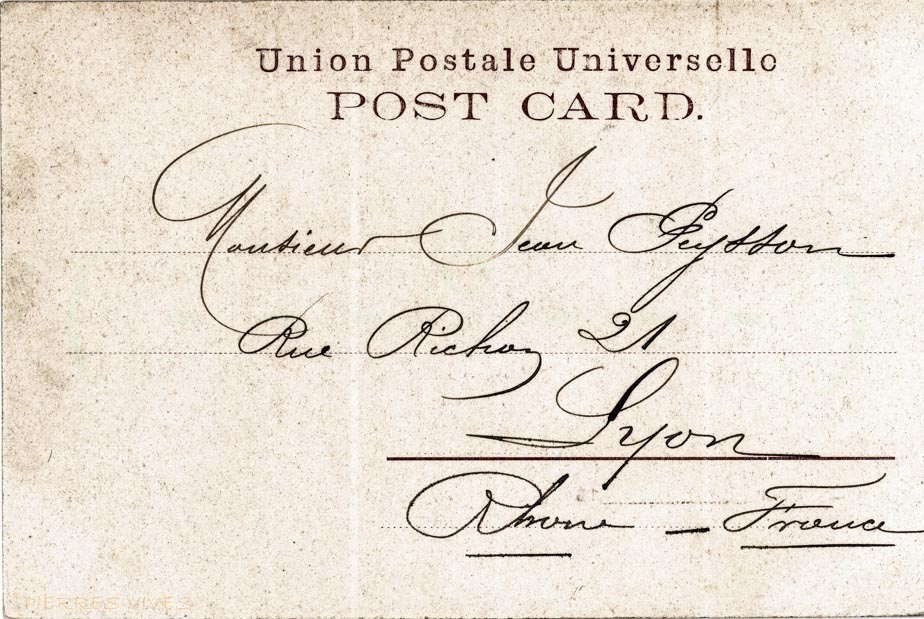 Union Postale Universelle
POST CARD.
Monsieur Jean Peysson
Rue Richan 21
Lyon
Rhone - France
PIERRES VIVES